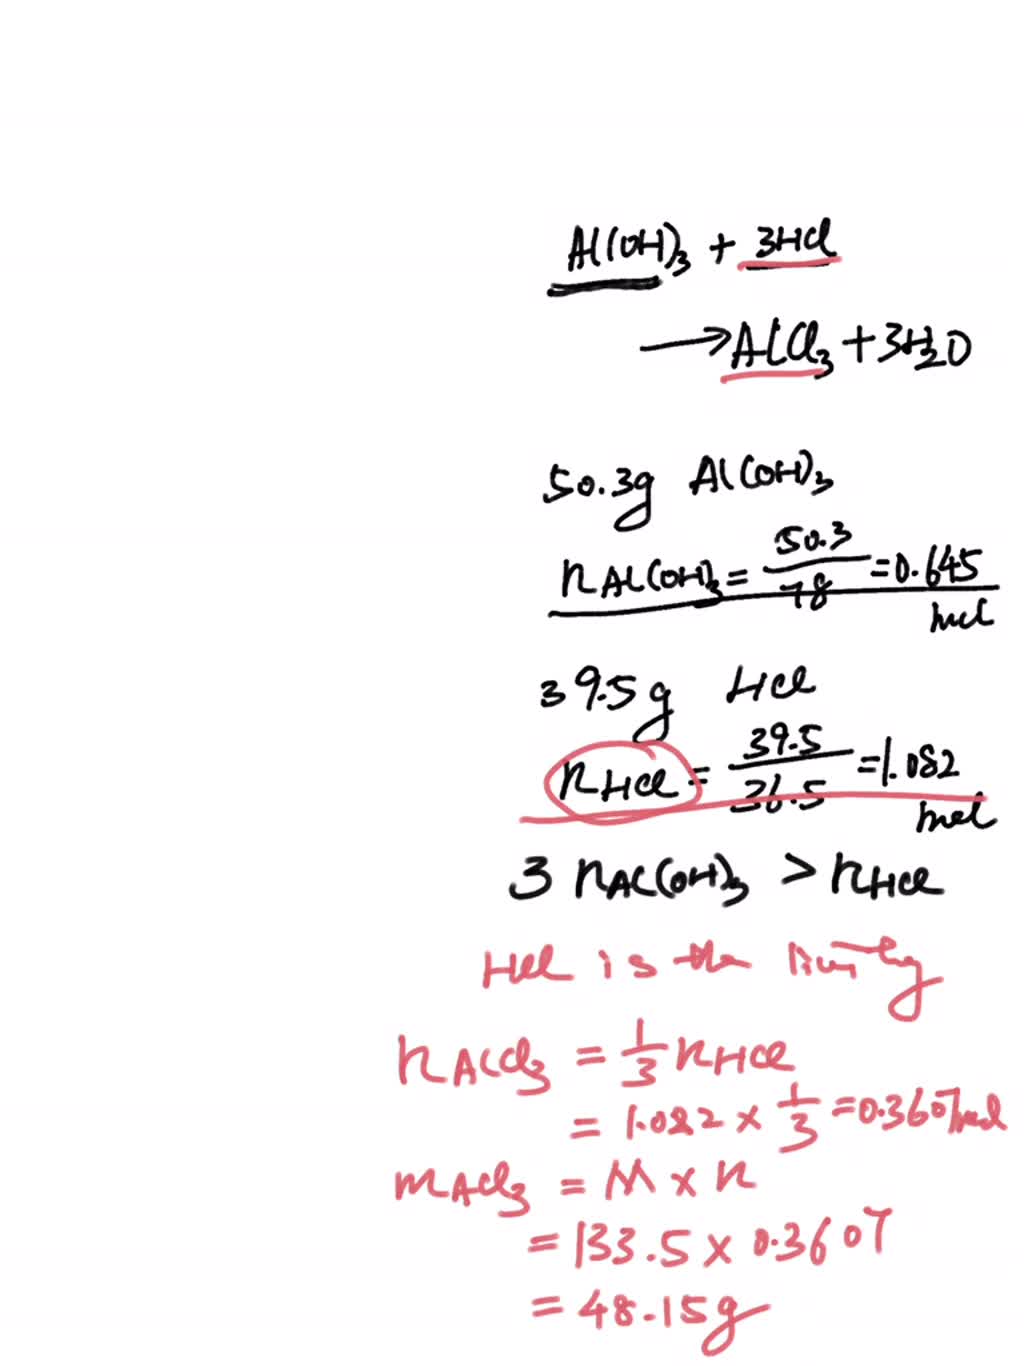 Al(OH)3 + 3HCl
→ AlCl3 + 3H2O
50.3g Al(OH)3
nAl(OH)3 = 50.3/78 = 0.645 mol
39.5g HCl
nHCl = 39.5/36.5 = 1.082 mol
3 nAl(OH)3 > nHCl
HCl is the
nAlCl3 = 1/3 nHCl
= 1.082 × 1/3 = 0.3607 mol
mAlCl3 = M × n
= 133.5 × 0.3607
= 48.15g